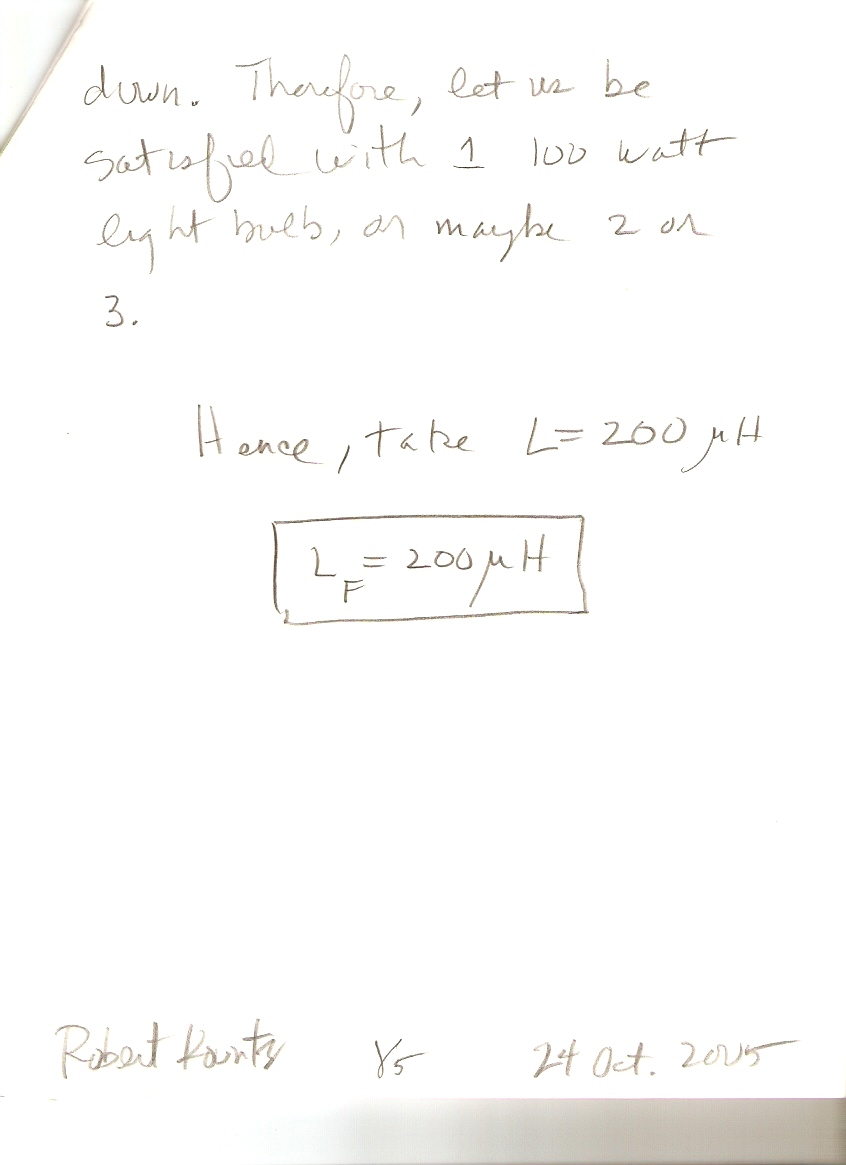 down. Therefore, let us be
satisfied with 1 100 watt
light bulb, or maybe 2 or
3.
Hence, take L = 200 μH
L_F = 200 μH
Robert 24 Oct. 2005